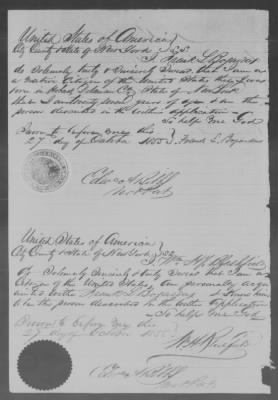 United States of America
City County & State of New York } SS.
I Frank L Bogardus
do Solemnly truly & Sincerely Swear that I am
a native Citizen of the United States that I was
born in Delaware Co State of New York
that I am twenty seven years of age & am the
person described in the within application
So help me God
Sworn to before me this
27 day of October 1855 } Frank L Bogardus
Edwd A
Not Pub
United States of America
City County & State of New York } SS.
I Wm H
do Solemnly Sincerely & truly Swear that I am
Citizen of the United States, am personally acquain
ted with Frank L Bogardus and know him
to be the person described in the within Application
So help me God
Sworn to before me this
27 day of October 1855 }
Wm H
Edwd A
Not Pub